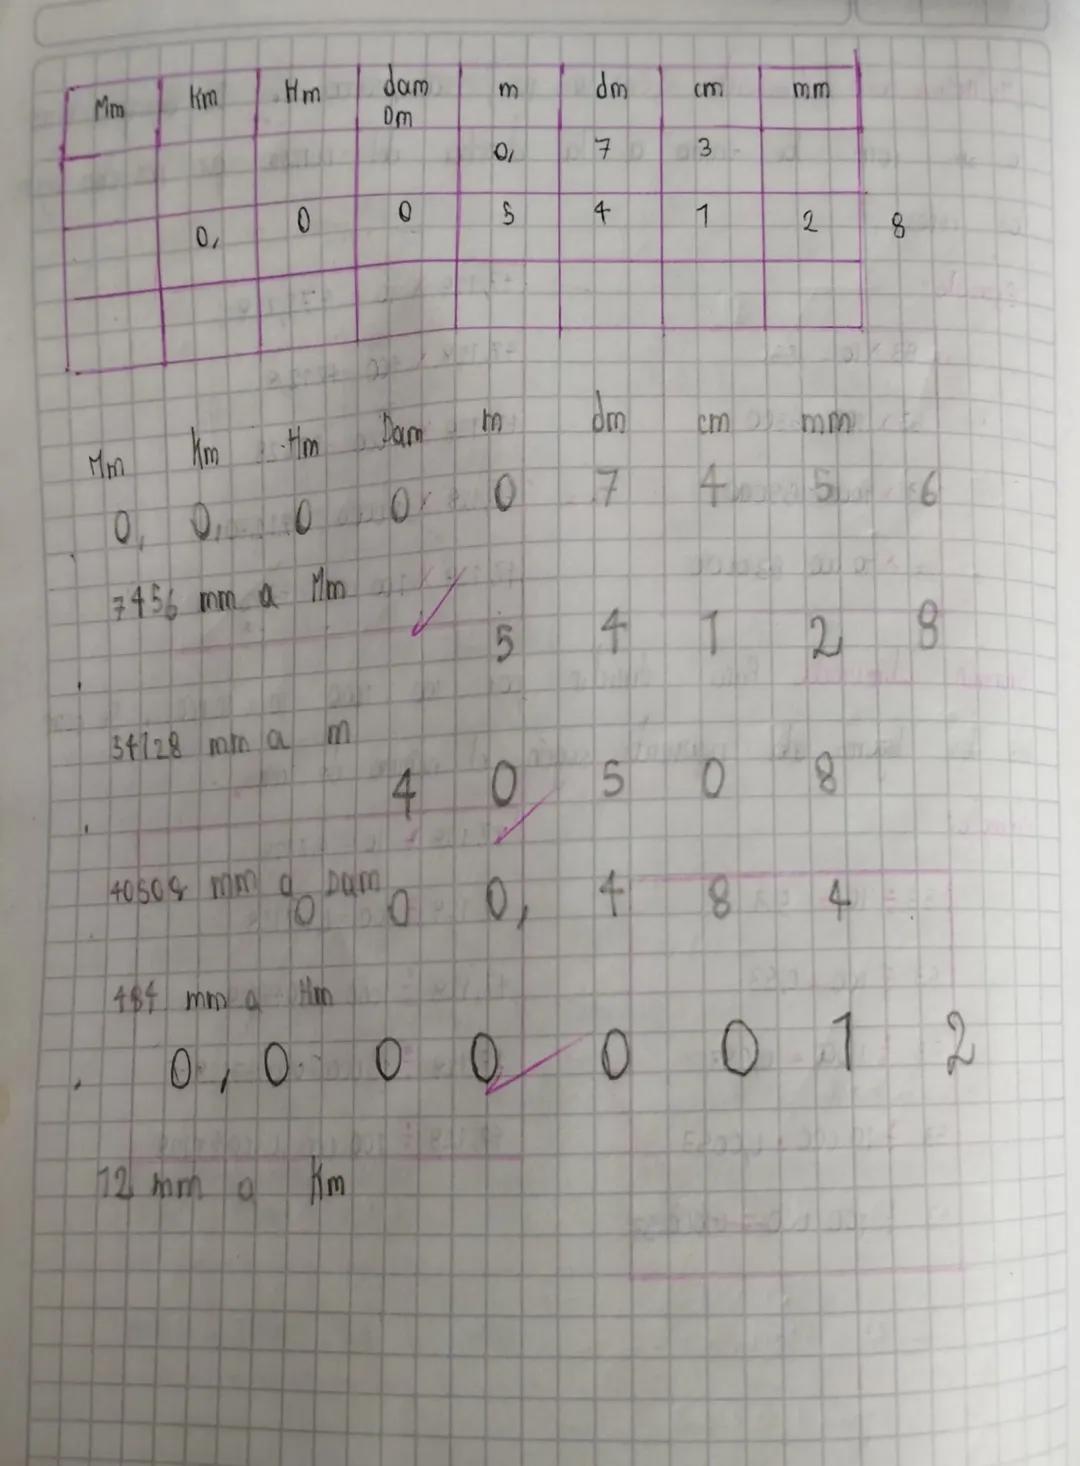 Mm Km Hm dam m dm cm mm
Dm
0, 7 3
0, 0 0 5 4 1 2 8
Mm Km Hm Dam m dm cm mm
0, 0, 0 0 0 7 4 5 6
7456 mm a Mm
5 4 1 2 8
54128 mm a m
4 0 5 0 8
40508 mm a Dam
0 0 0, 4 8 4
484 mm a Hm
0, 0 0 0 0 0 1 2
12 mm a Km